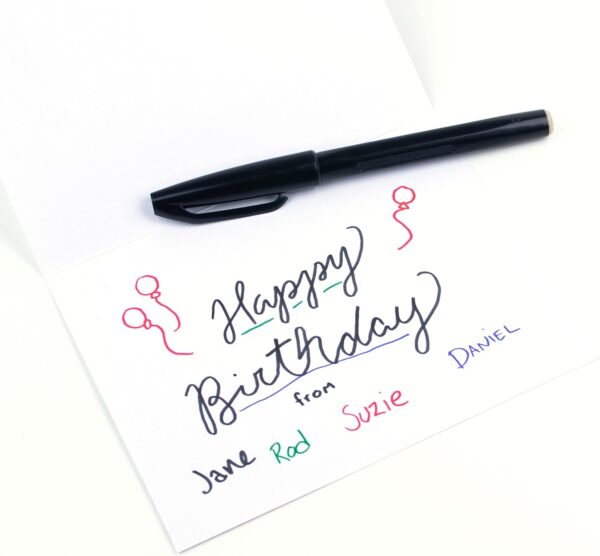 Happy
Birthday
from
Jane Rod Suzie DANIEL